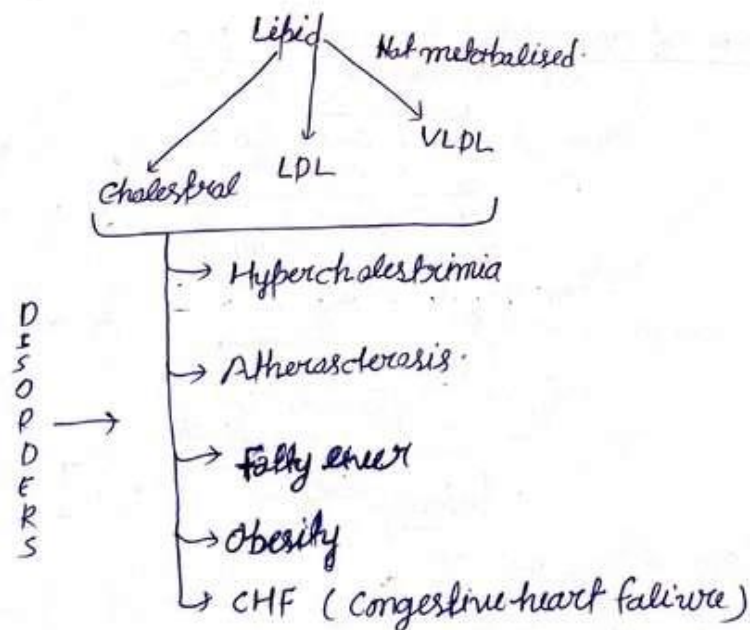 Lipid
Not metobalised.
Cholestral
LDL
VLDL
Hypercholestrimia
Atherosclerosis.
DISORDERS
Fatty liver
Obesity
CHF (Congestive heart faliure)